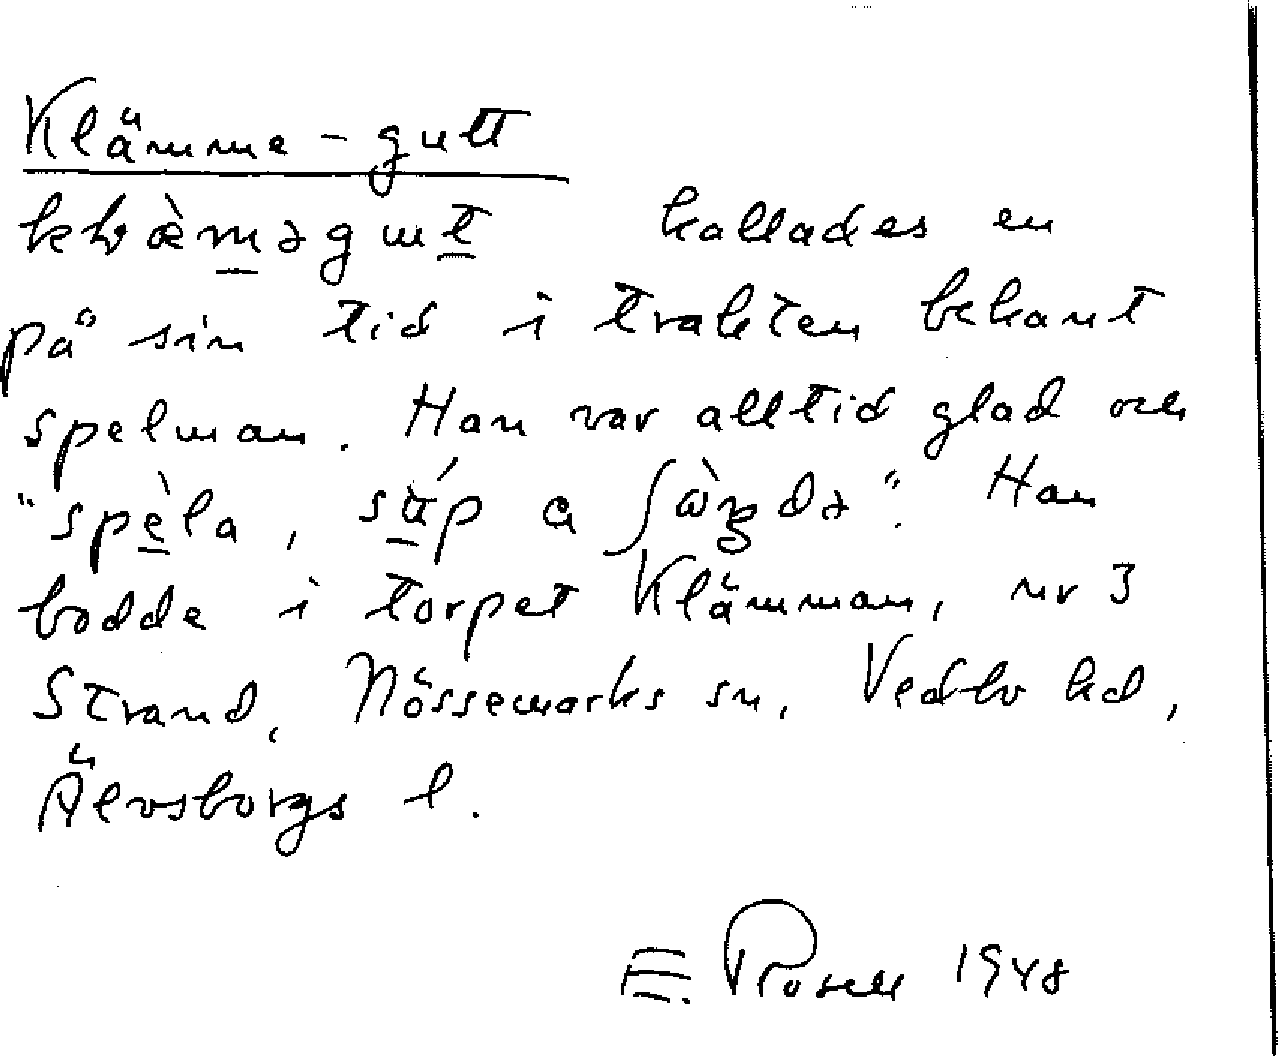 Klämme-gutt
kallades en
på sin tid i trakten bekant
spelman. Han var alltid glad och
"spèla, súp a ʃàŋdə". Han
bodde i torpet Klämman, nr 3
Strand, Nössemarks sn, Vedbo hd,
Älvsborgs l.
E. Rosell 1948